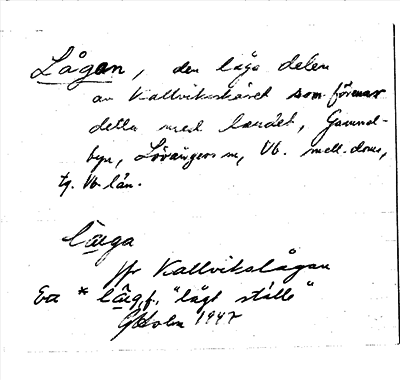 Lågan, den låga delen
av Kallviksskäret som förenar
detta med landet, Gamnd-
byn, Lövångers sn, Vb. mell. doms,
tg. Vb. län.
låga
jfr Kallvikslågan
Ett * låg f. "lågt ställe"
GHolm 1947